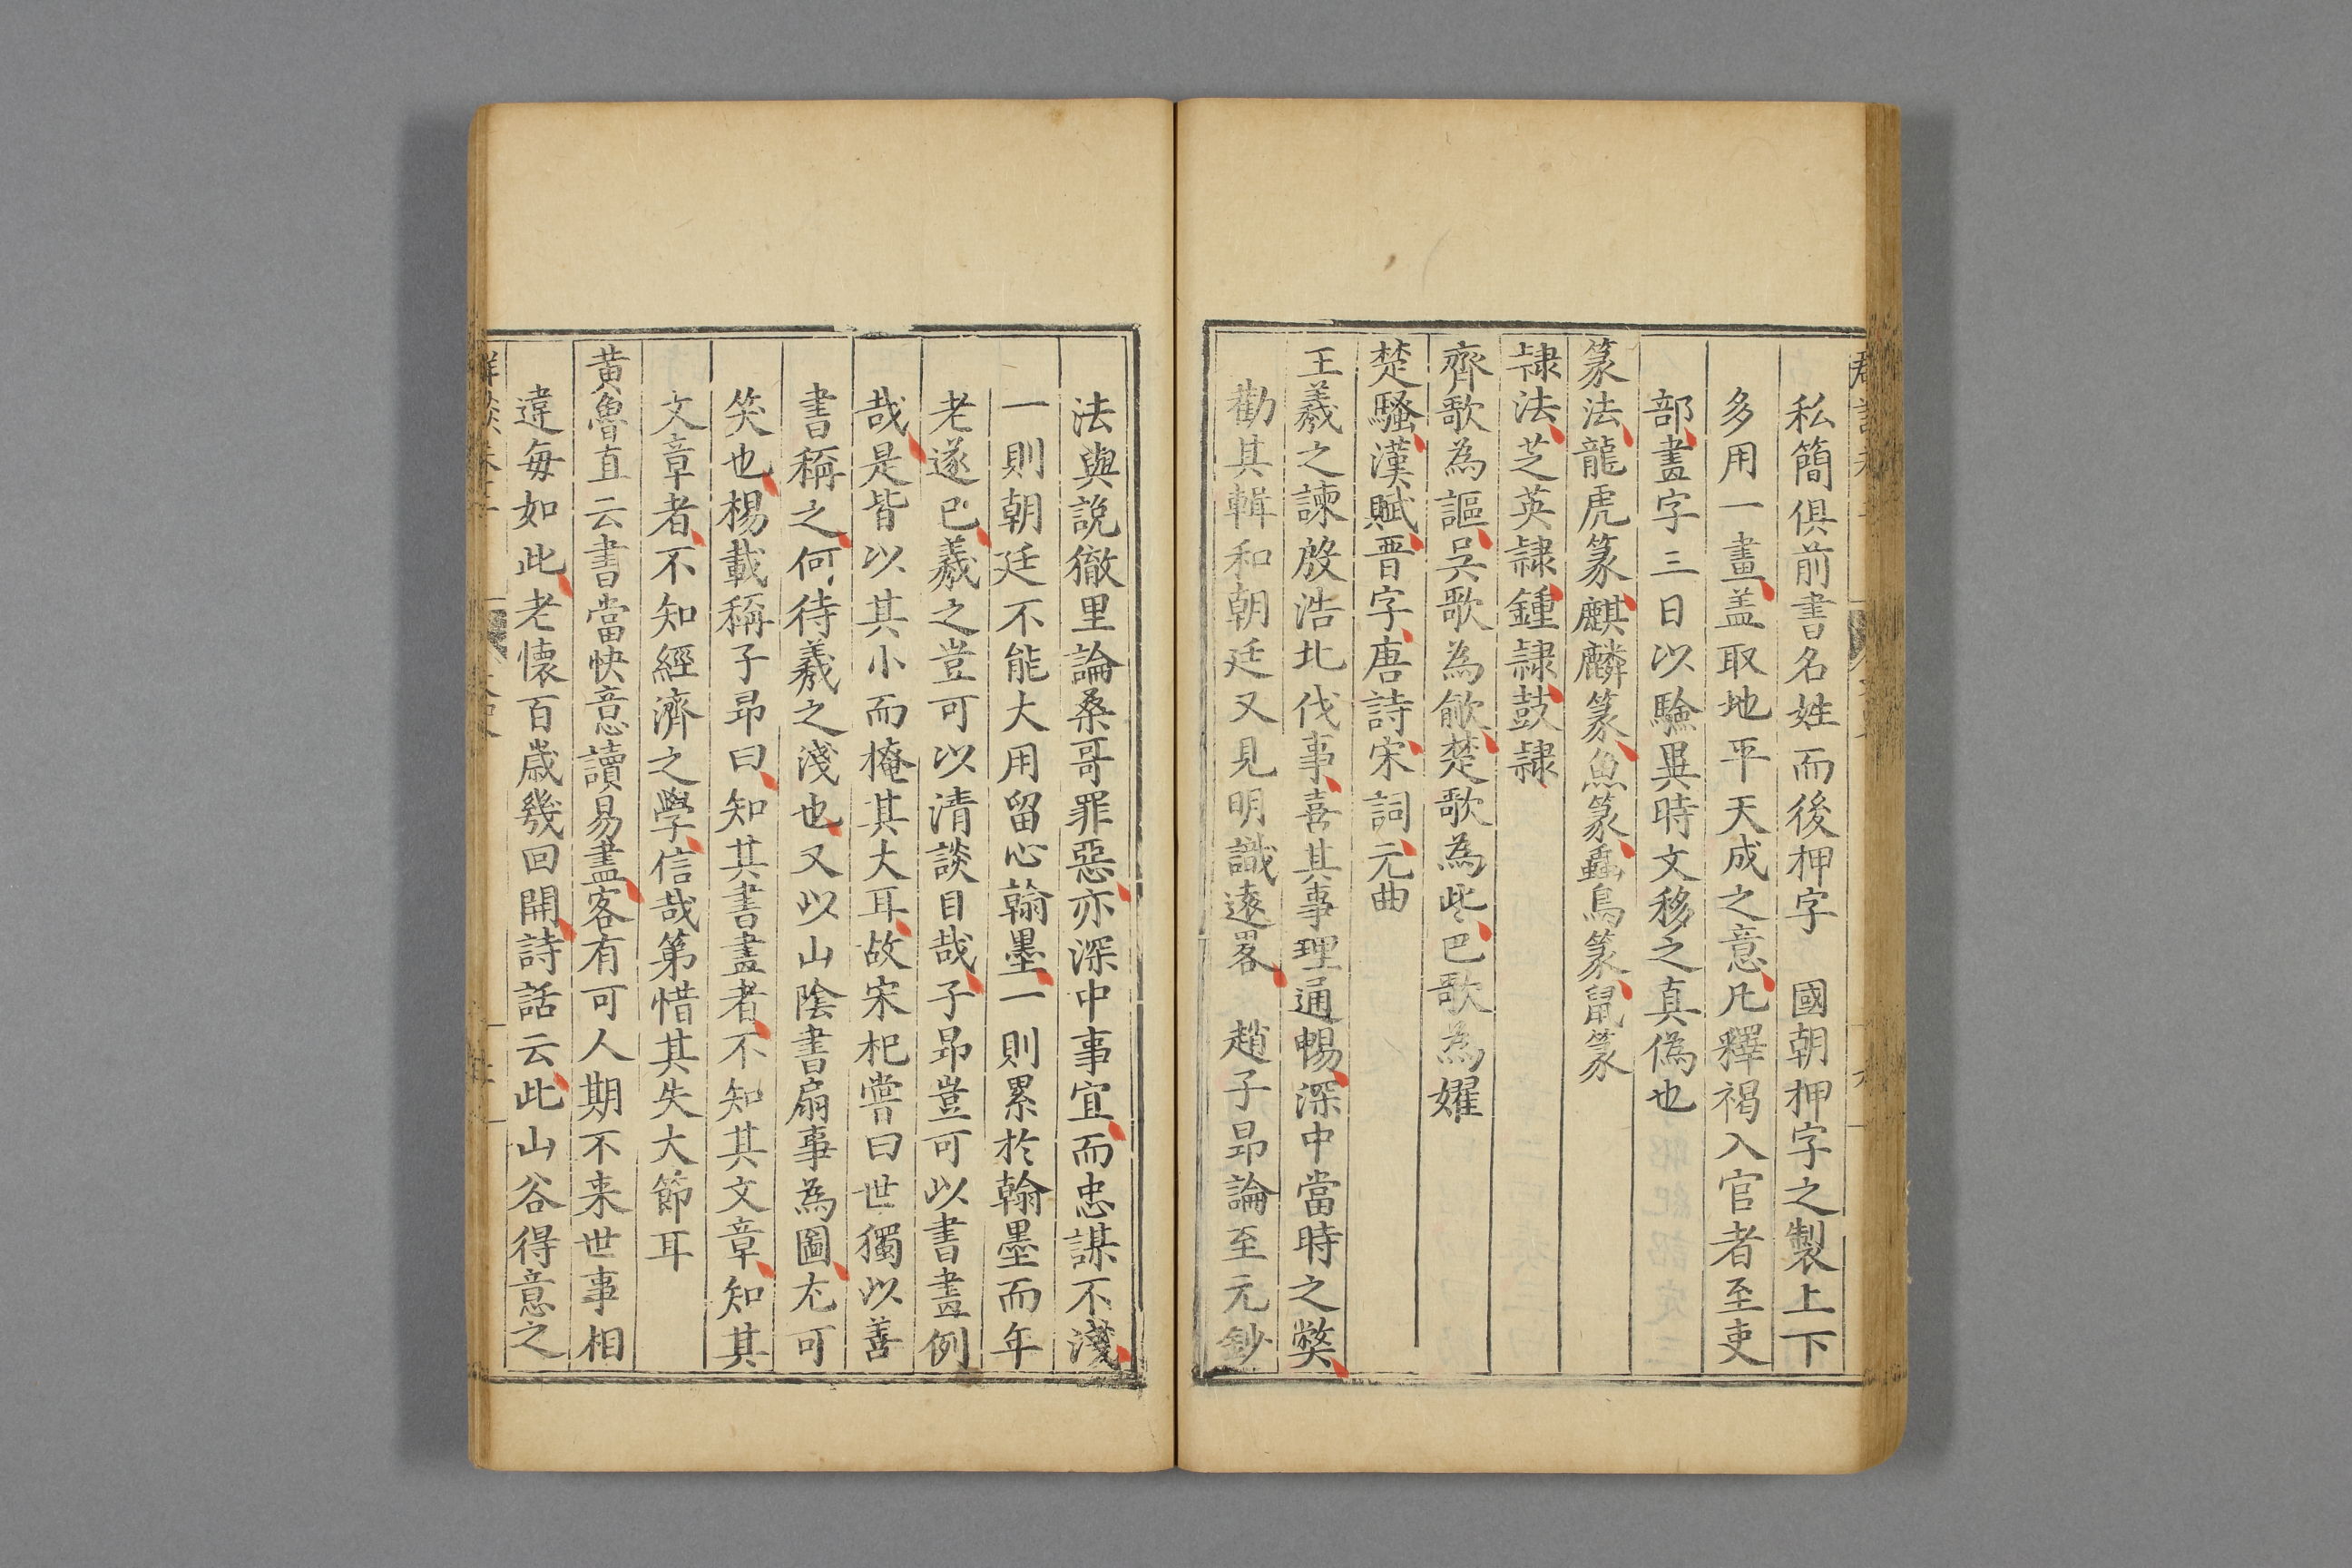 私簡俱前書名姓而後押字　國朝押字之製上下
多用一畫盖取地平天成之意凡釋褐入官者至吏
部畫字三日以驗異時文移之真偽也
篆法龍虎篆麒麟篆魚篆蟲鳥篆鼠篆
隸法芝英隸鍾隸鼓隸
齊歌為謳呉歌為歈楚歌為些巴歌為嬥
楚騷漢賦晋字唐詩宋詞元曲
王羲之諫殷浩北伐事喜其事理通暢深中當時之獘
勸其輯和朝廷又見明識遠畧　趙子昻論至元鈔
法與說徹里論桑哥罪惡亦深中事宜而忠謀不淺
一則朝廷不能大用留心翰墨一則累於翰墨而年
老遂已羲之豈可以清談目哉子昻豈可以書畫例
哉是皆以其小而掩其大耳故宋杞嘗曰世獨以善
書稱之何待羲之淺也又以山陰書扇事為圖尤可
笑也楊載稱子昻曰知其書畫者不知其文章知其
文章者不知經濟之學信哉第惜其失大節耳
黃魯直云書當快意讀易盡客有可人期不来世事相
違每如此老懷百歲幾回開詩話云此山谷得意之